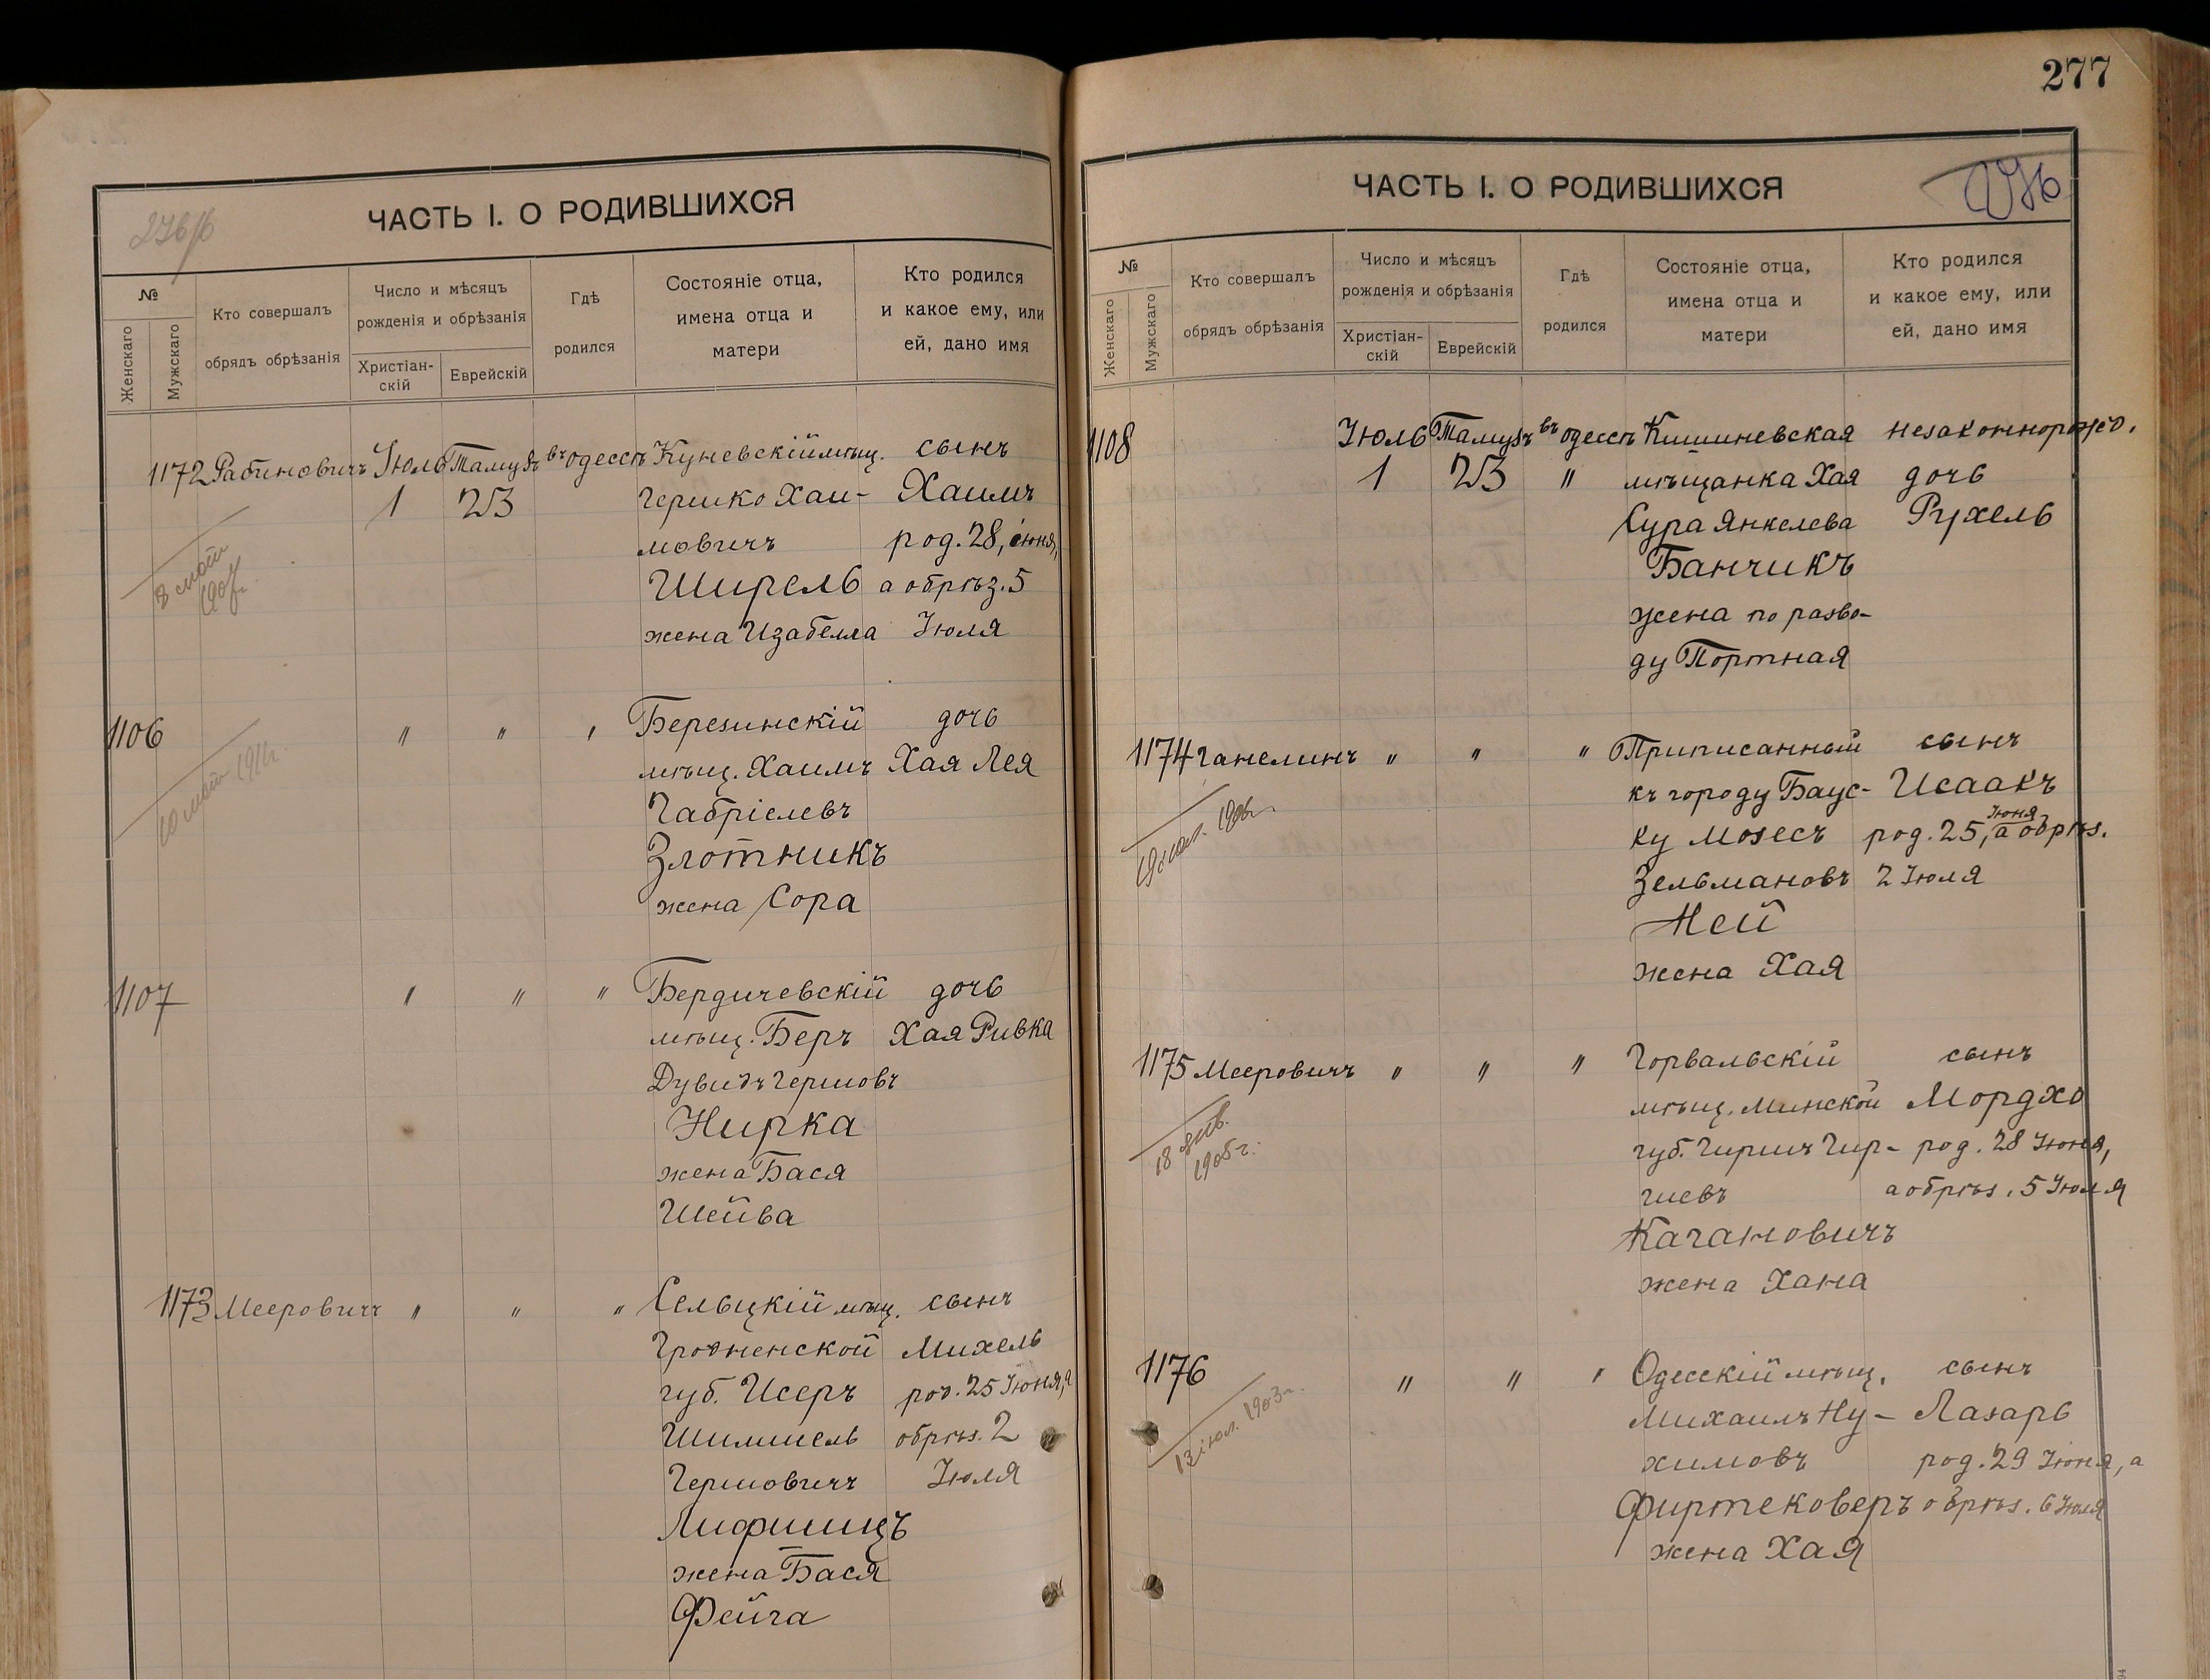 277
ЧАСТЬ I. О РОДИВШИХСЯ
276/б
№
Женскаго
Мужскаго
Кто совершалъ
обрядъ обрѣзанія
Число и мѣсяцъ
рожденія и обрѣзанія
Христіан-
скій
Еврейскій
Гдѣ
родился
Состояніе отца,
имена отца и
матери
Кто родился
и какое ему, или
ей, дано имя
1172 Рабиновичъ Іюль Тамузъ въ Одессѣ Куневскій мѣщ. сынъ
1 23 Гершко Хаи- Хаимъ
мовичъ род. 28, іюня,
Ширель а обрѣз. 5
жена Изабелла Іюля
1907 г.
1106 " " " Березинскій дочь
мѣщ. Хаимъ Хая Лея
Габріелевъ
Злотникъ
жена Сора
1107 " " " Бердичевскій дочь
мѣщ. Беръ Хая Ривка
Дувидъ Гершовъ
Нирка
жена Бася
Шейва
1173 Мееровичъ " " " Сельцкій мѣщ. сынъ
Гродненской Михель
губ. Исеръ род. 25 Іюня, а
Шимшель обрѣз. 2
Гершовичъ Іюля
Лифшицъ
жена Бася
Фейга
ЧАСТЬ I. О РОДИВШИХСЯ
276
№
Женскаго
Мужскаго
Кто совершалъ
обрядъ обрѣзанія
Число и мѣсяцъ
рожденія и обрѣзанія
Христіан-
скій
Еврейскій
Гдѣ
родился
Состояніе отца,
имена отца и
матери
Кто родился
и какое ему, или
ей, дано имя
1108 Іюль Тамузъ въ Одессѣ Кишиневская незаконнорожд.
1 23 " мѣщанка Хая дочь
Сура Янкелева Рухель
Банчикъ
жена по разво-
ду Портная
1174 Ганелинъ " " " Приписанный сынъ
къ городу Баус- Исаакъ
ку Мозесъ род. 25, Іюня а обрѣз.
Зельмановъ 2 Іюля
Ней
жена Хая
1175 Мееровичъ " " " Горвальскій сынъ
мѣщ. Минской Мордхо
губ. Гиршъ Гир- род. 28 Іюня,
шевъ а обрѣз. 5 Іюля
Качановичъ
жена Хана
18 янв.
1905 г.
1176 " " " Одесскій мѣщ. сынъ
Михаилъ Ну- Лазарь
химовъ род. 29 Іюня, а
Фиртековеръ обрѣз. 6 Іюля
жена Хая
13 іюл. 1903 г.